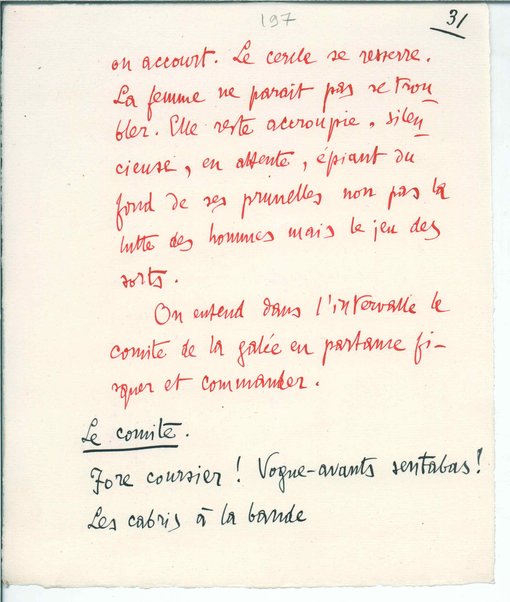 197
31
on accourt. Le cercle se resserre.
La femme ne parait pas se trou-
bler. Elle reste accroupie, silen-
cieuse, en attente, épiant du
fond de ses prunelles non pas la
lutte des hommes mais le jeu des
sorts.
On entend dans l'intervalle le
comite de la galée en partance fi-
squer et commander.
Le comite.
Fore coursier ! Vogue-avants sentabas !
Les cabris à la bande